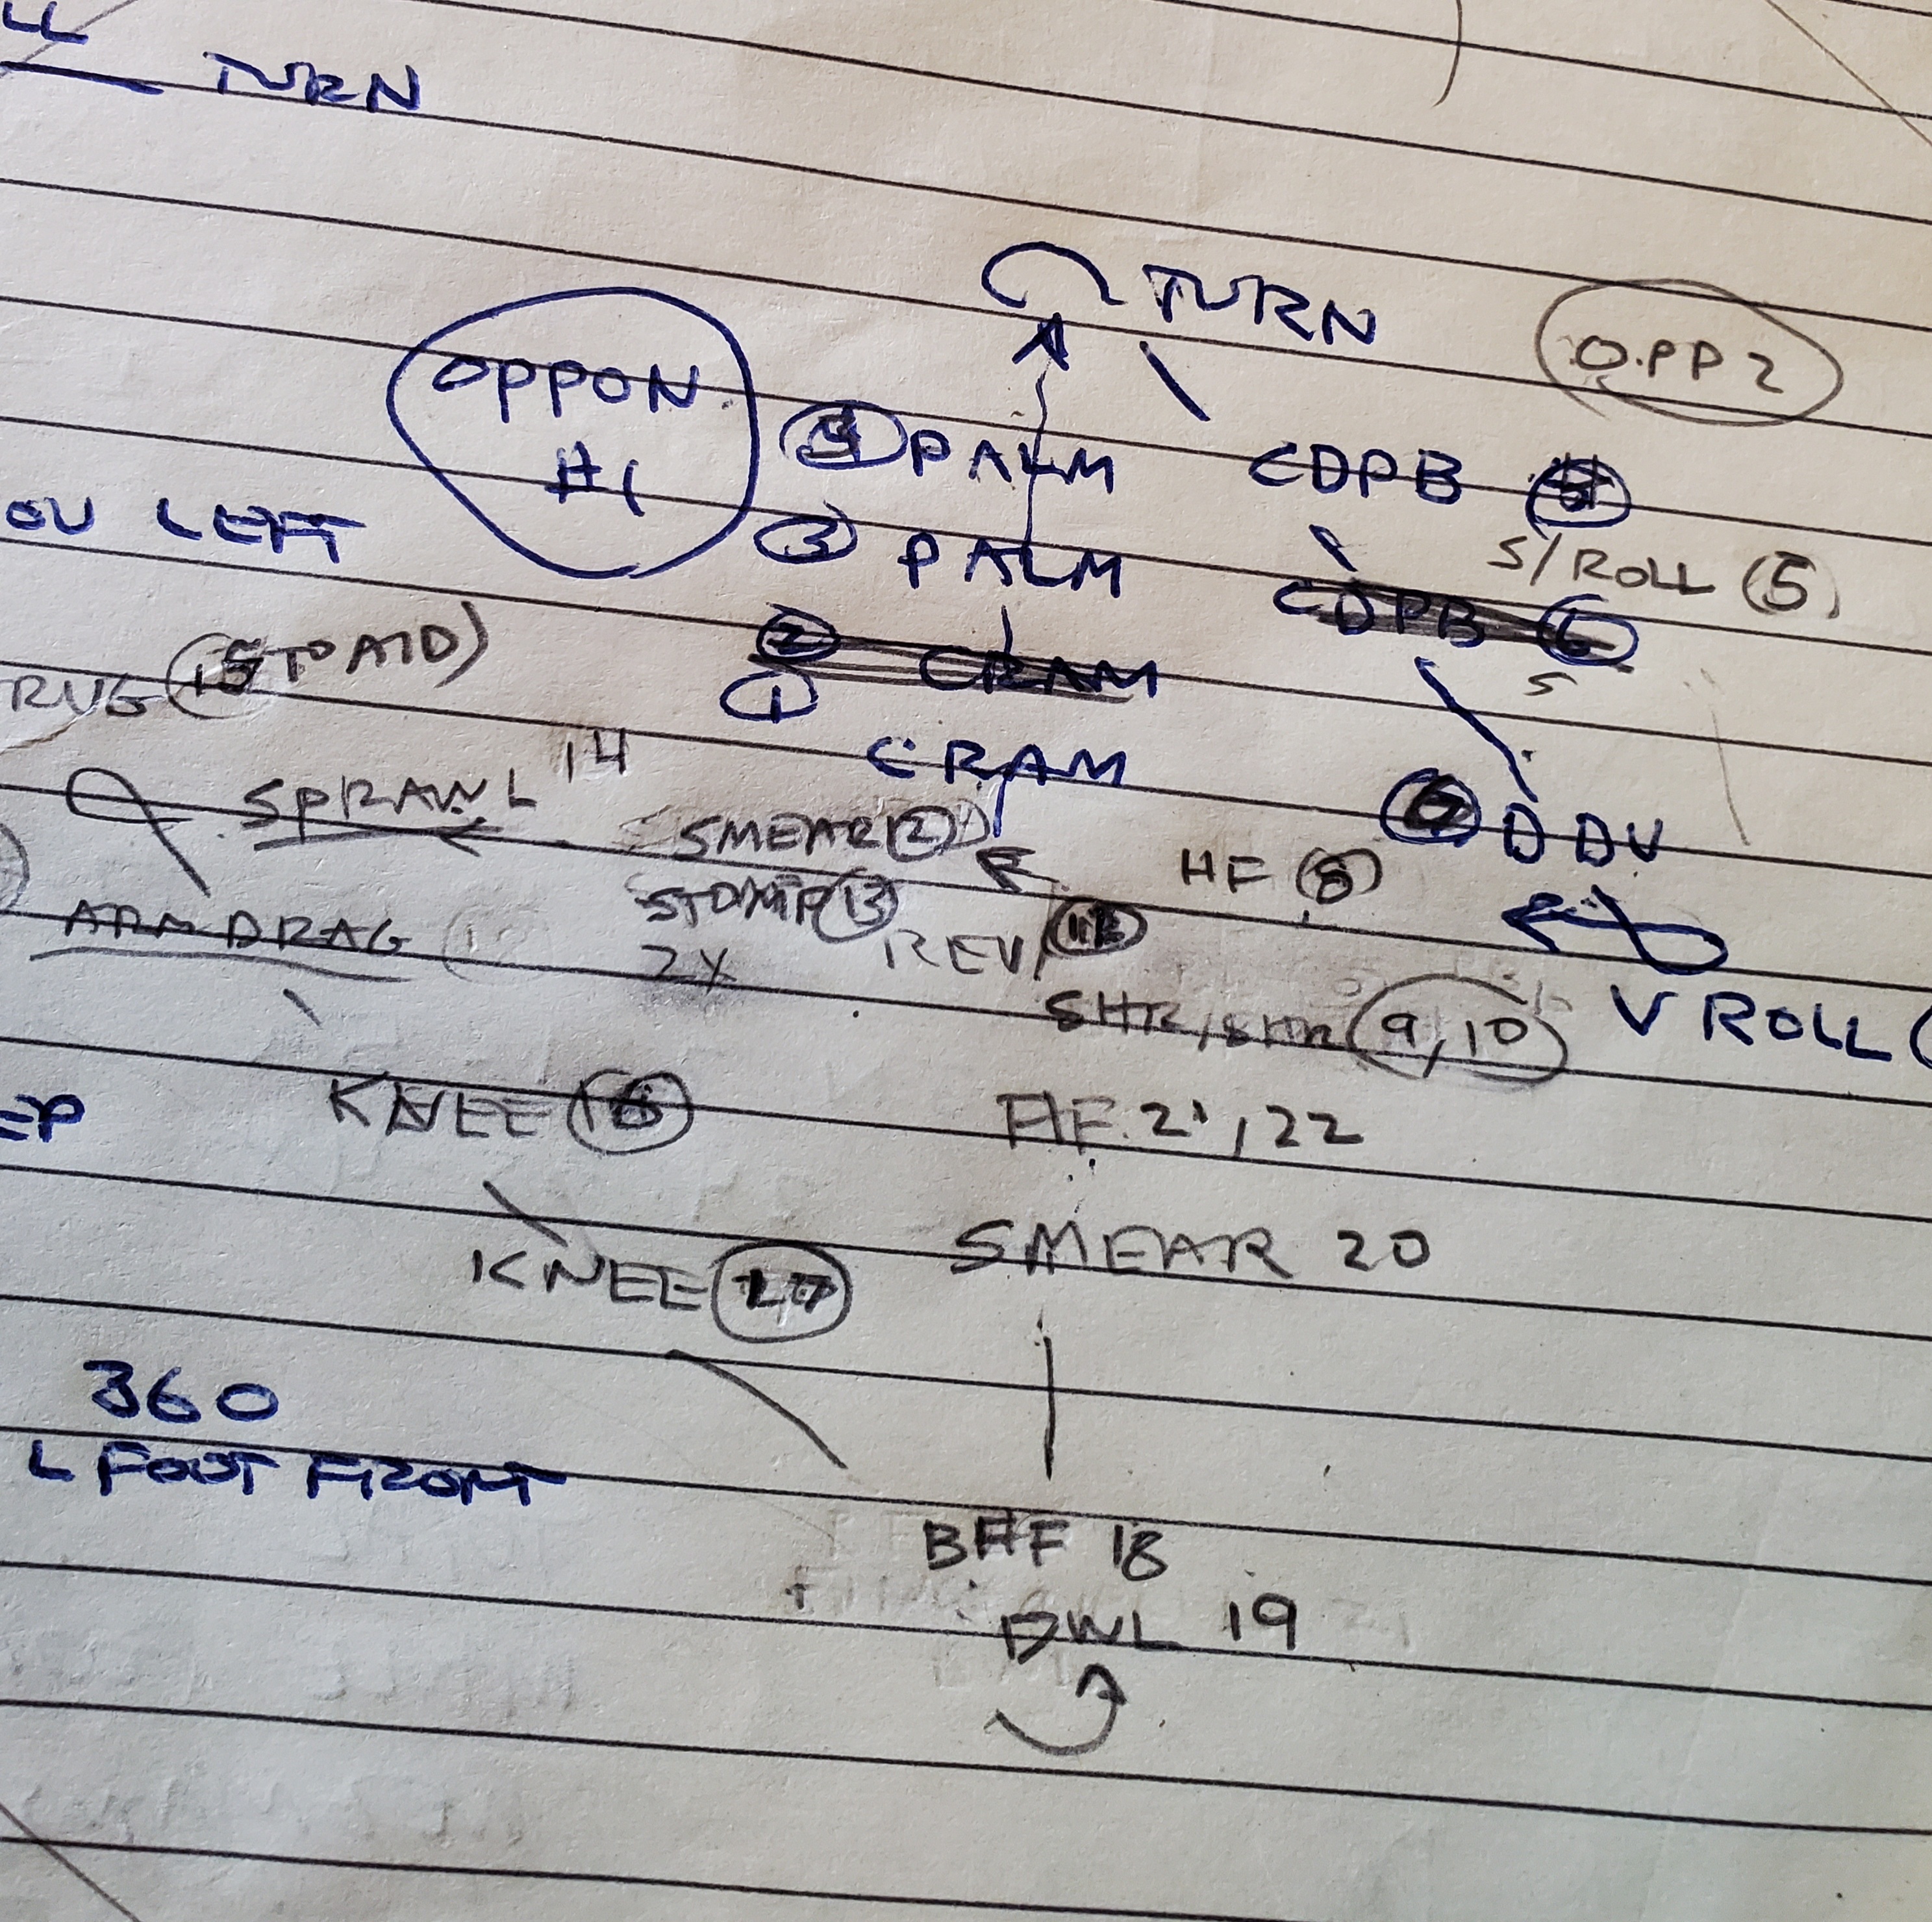 LL
TURN
TURN
OPPON
#1
OPP 2
PALM
CDPB
3 PALM
S/ROLL (5)
OU LEFT
2 CRAM
CDPB 6
S
1
CRAM
RUG 15 STOAID)
SPRAWL 14
SMEAR 12
DDV
HF (8)
STOMP 13
2X
REV
ARM DRAG
SHR/SHR 9, 10
V ROLL
EP
KNEE 16
HF 21, 22
KNEE 17
SMEAR 20
360
L FOOT FRONT
BHF 18
DWL 19